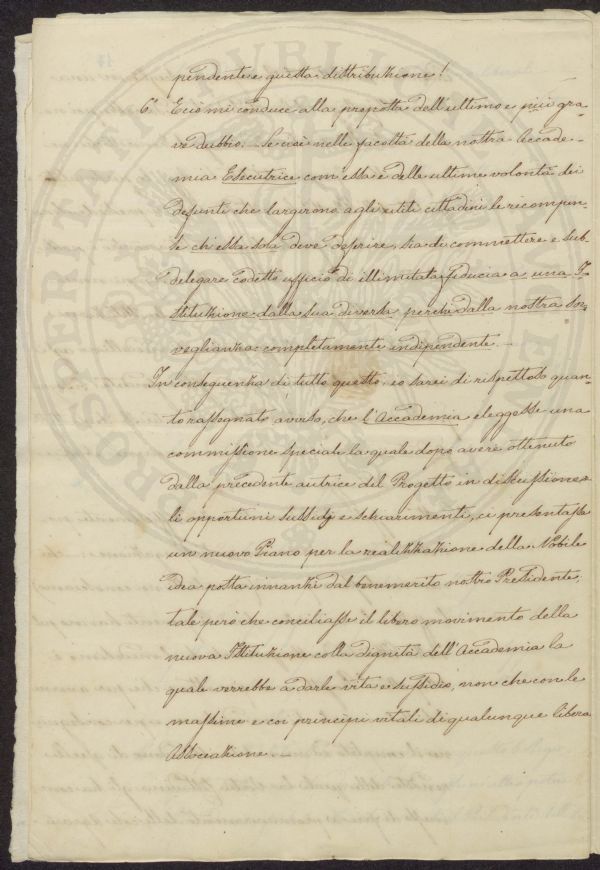 pendente e questa distribuzione!
6° E ciò mi conduce alla proposta dell'ultimo e più gra-
ve dubbio. — Se cioè nelle facoltà della nostra Accade-
mia Esecutrice com'essa è delle ultime volontà dei
defunti che largirono agli utili cittadini le ricompen-
se ch'essa sola deve deferire, sia di commettere e sub-
delegare codesto ufficio di illimitata fiducia a una I-
stituzione dalla sua diversa perchè dalla nostra Sor-
veglianza completamente indipendente. —
In conseguenza di tutto questo, io sarei di rispettoso quan-
to rassegnato avviso, che l'Accademia eleggesse una
commissione speciale la quale dopo avere ottenuto
dalla precedente autrice del Progetto in discussione
li opportuni sussidj e schiarimenti, ci presentasse
un nuovo Piano per la realizzazione della Nobile
idea posta innanzi dal benemerito nostro Presidente,
tale però che conciliasse il libero movimento della
nuova Istituzione colla dignità dell'Accademia la
quale verrebbe a darle vita e sussidio, non che con le
massime e coi principi vitali di qualunque libera
Associazione. —